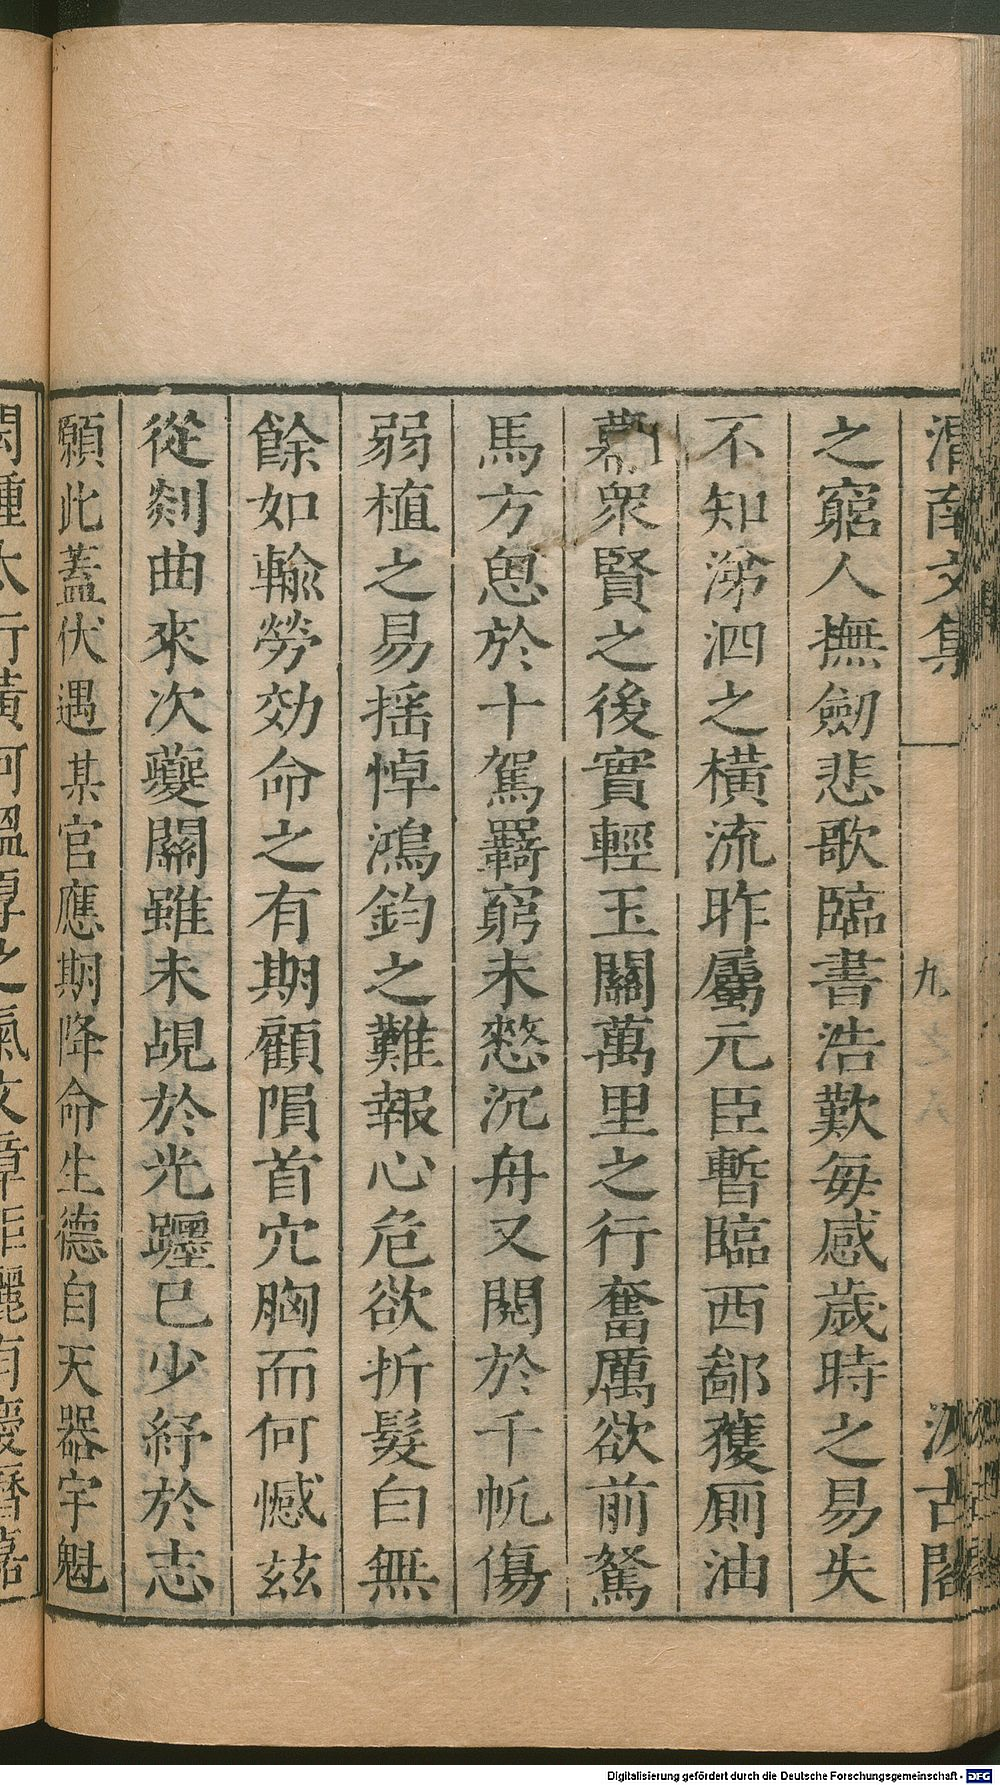 渭南文集 九之八 汲古閣
之窮人撫劒悲歌臨書浩歎每感歲時之易失
不知涕泗之橫流昨屬元臣暫臨西鄙獲厠油
幕衆賢之後實輕玉關萬里之行奮厲欲前駑
馬方思於十駕羇窮未憗沉舟又閱於千帆傷
弱植之易揺悼鴻鈞之難報心危欲折髮白無
餘如輸勞効命之有期顧隕首穴胸而何憾玆
從剡曲來次夔關雖未覘於光躔已少紓於志
願此蓋伏遇某官應期降命生德自天器宇魁
閎鍾太行黃河溫厚之氣文章
麗有慶曆嘉
Digitalisierung gefördert durch die Deutsche Forschungsgemeinschaft - DFG